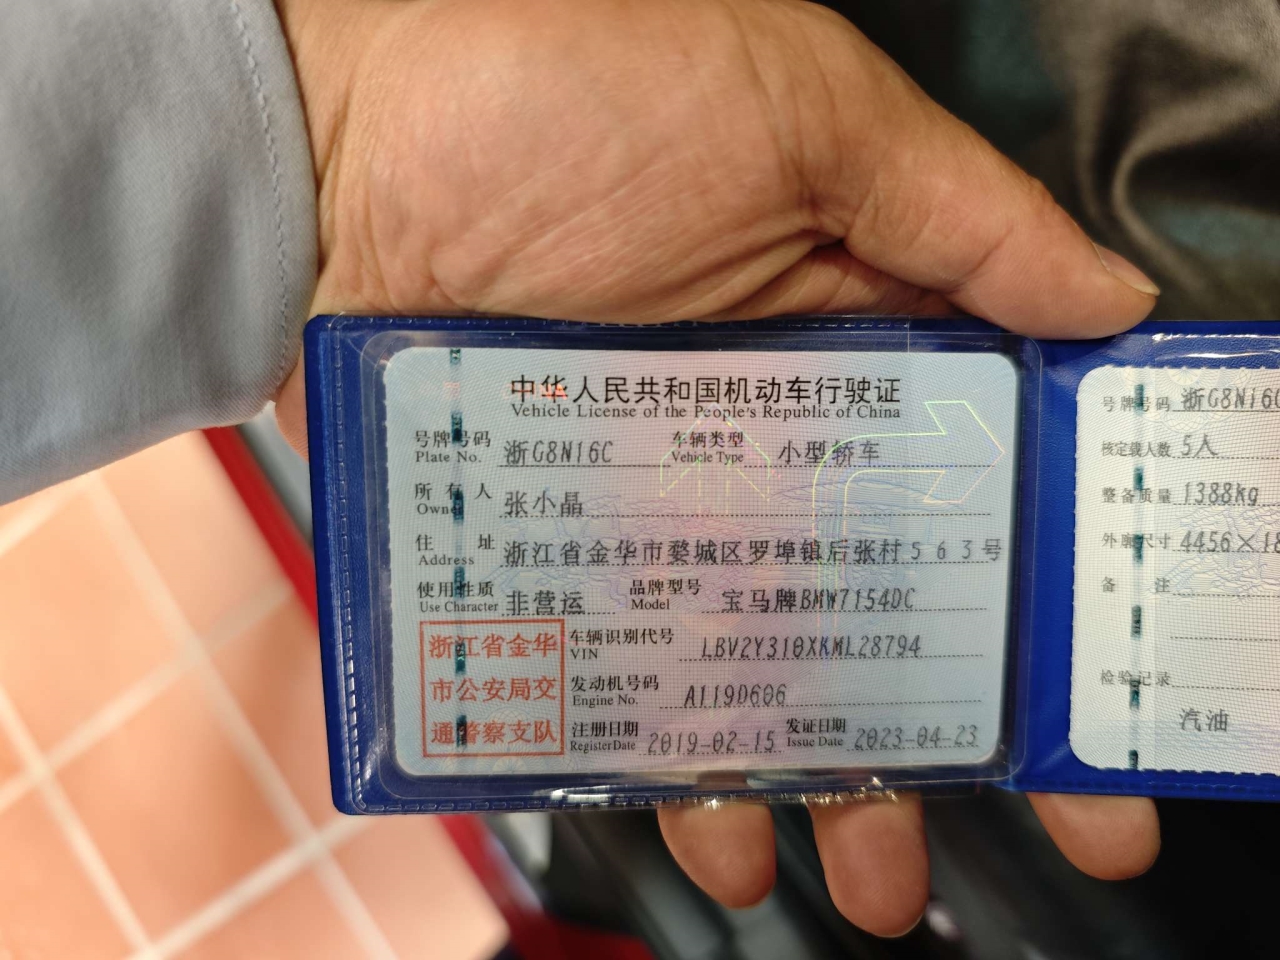 中华人民共和国机动车行驶证
Vehicle License of the People's Republic of China
号牌号码 浙G8N16C 车辆类型 小型轿车
Plate No. Vehicle Type
所有人 张小晶
Owner
住址 浙江省金华市婺城区罗埠镇后张村563号
Address
使用性质 非营运 品牌型号 宝马牌BMW7154DC
Use Character Model
浙江省金华
市公安局交
通警察支队
车辆识别代号 LBV2Y310XKML28794
VIN
发动机号码 A119D606
Engine No.
注册日期 2019-02-15 发证日期 2023-04-23
Register Date Issue Date
号牌号码 浙G8N16C
核定载人数 5人
整备质量 1388kg
外廓尺寸 4456×18
备注
检验记录
汽油